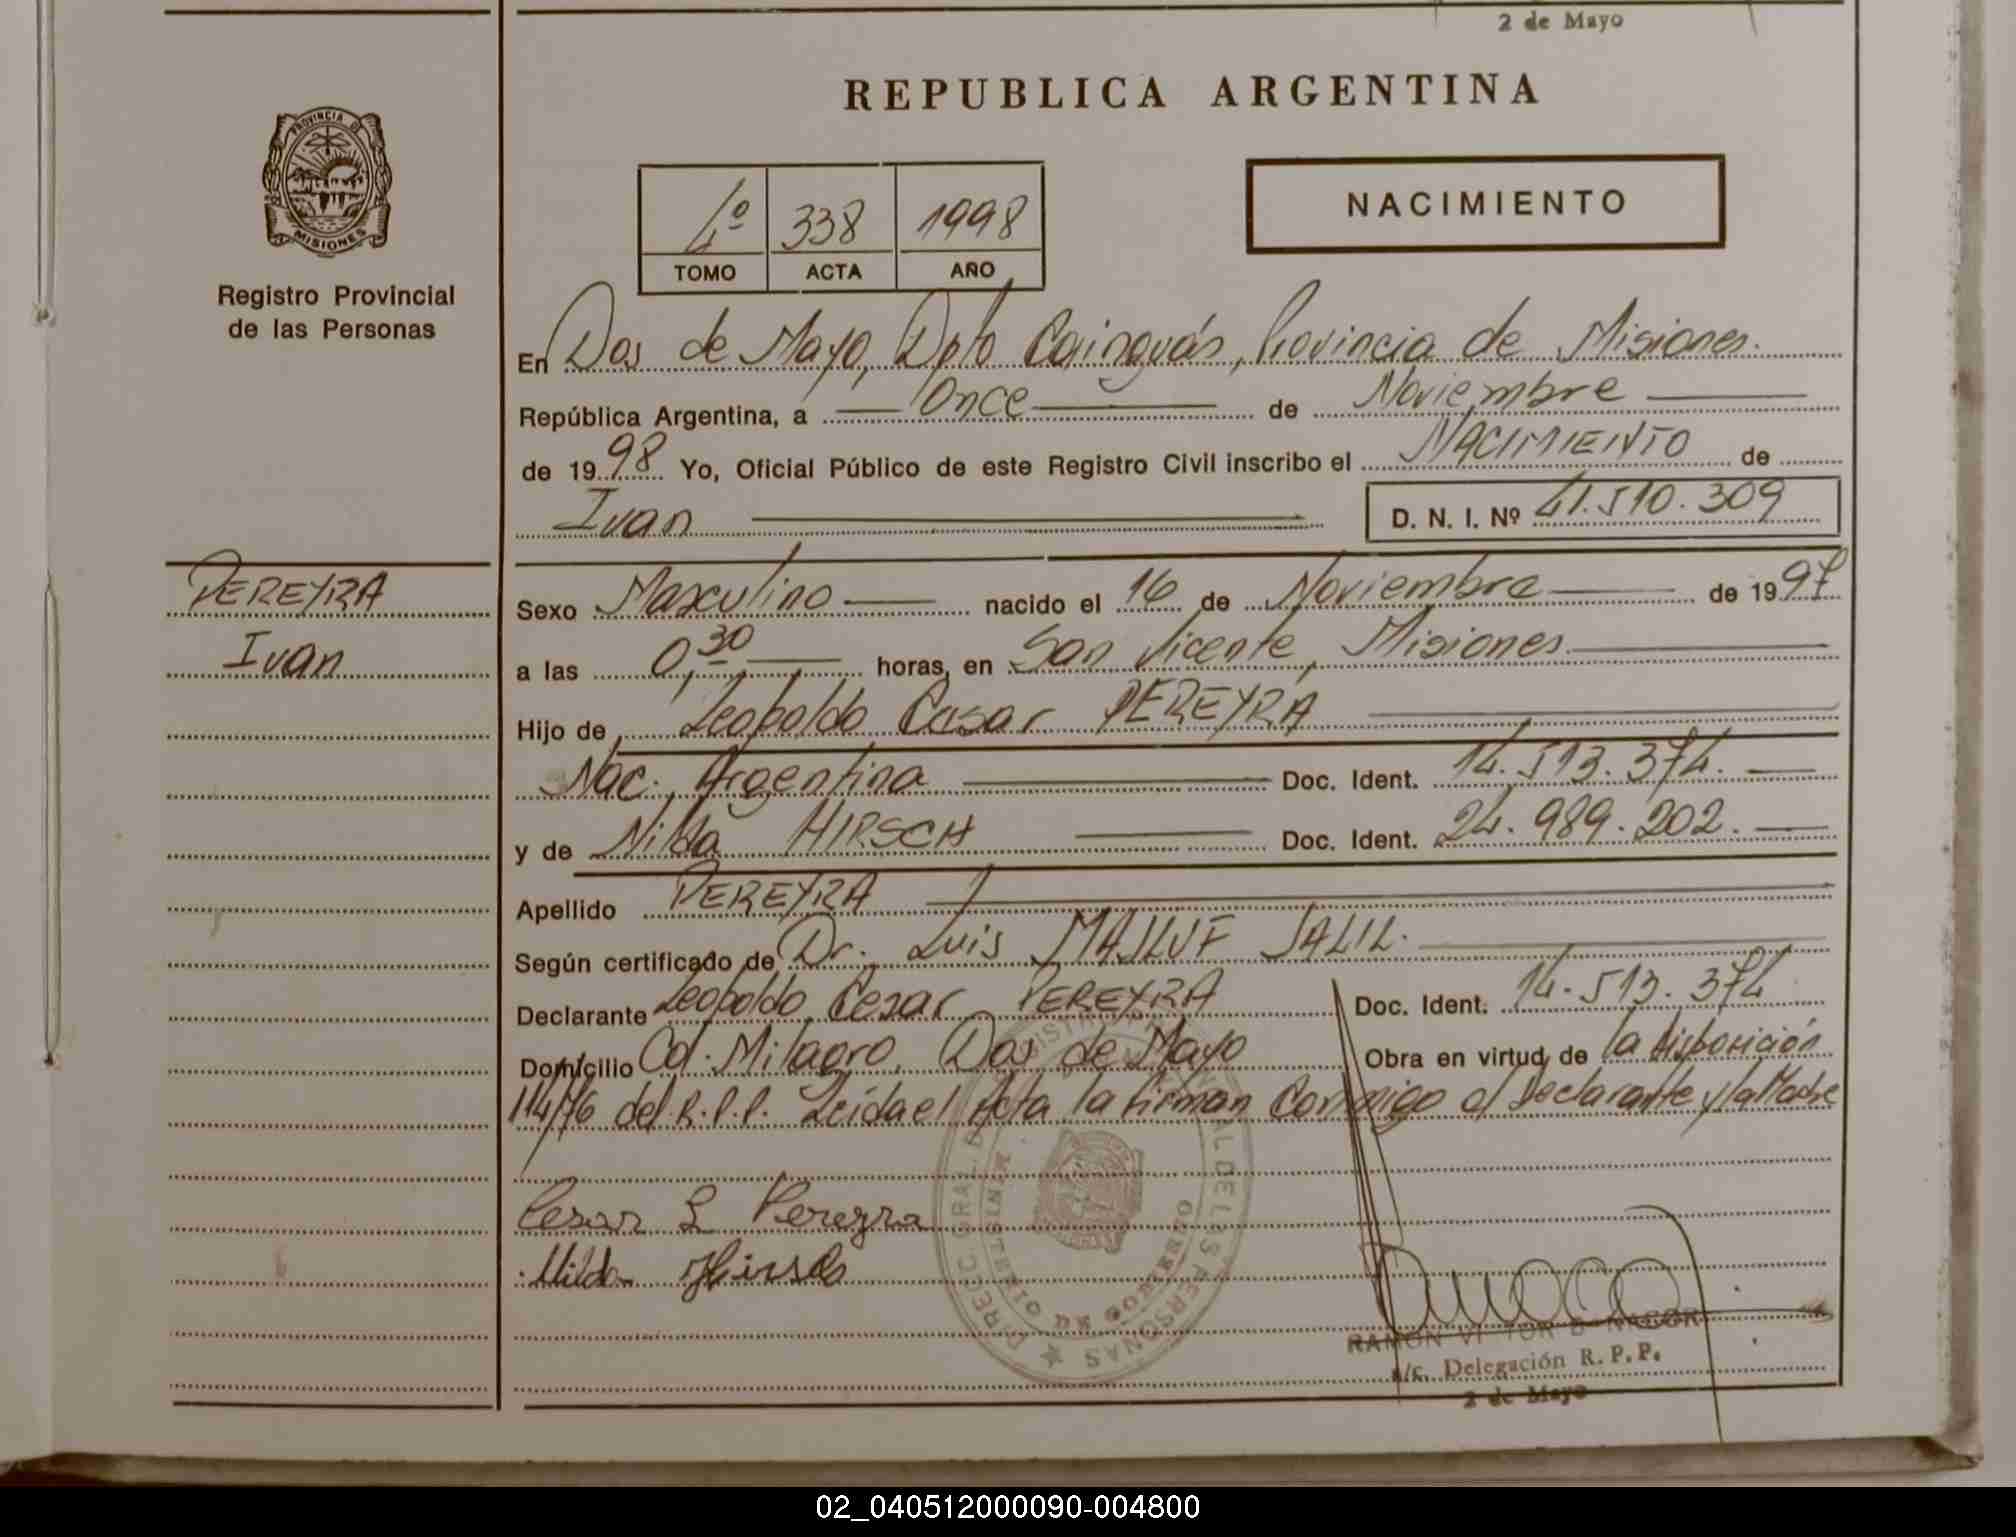 2 de Mayo
REPUBLICA ARGENTINA
PROVINCIA DE
MISIONES
Registro Provincial
de las Personas
4º 338 1998
TOMO ACTA AÑO
NACIMIENTO
En Dos de Mayo, Dpto Cainguás, Provincia de Misiones.
República Argentina, a Once de Noviembre
de 1998 Yo, Oficial Público de este Registro Civil inscribo el NACIMIENTO de
Ivan D. N. I. Nº 41.510.309
PEREYRA
Ivan
Sexo Masculino nacido el 16 de Noviembre de 1997
a las 0,30 horas, en San Vicente, Misiones
Hijo de Leopoldo Cesar PEREYRA
Nac. Argentina Doc. Ident. 14.513.374.
y de Nilda HIRSCH Doc. Ident. 24.989.202.
Apellido PEREYRA
Según certificado de Dr. Luis MAJLUF JALIL.
Declarante Leopoldo Cesar PEREYRA Doc. Ident. 14.513.374
Domicilio Cd. Milagro, Dos de Mayo Obra en virtud de la disposición
114/76 del R.P.P. Leída el Acta la firman Conmigo el Declarante y la Madre
Cesar L Pereyra
Nilda Hirsch
DIRECC. GRAL. DEL REGISTRO PROVINCIAL DE LAS PERSONAS
MINISTERIO DE GOBIERNO
RAMON
a/c. Delegación R. P. P.
2 de Mayo
02_040512000090-004800